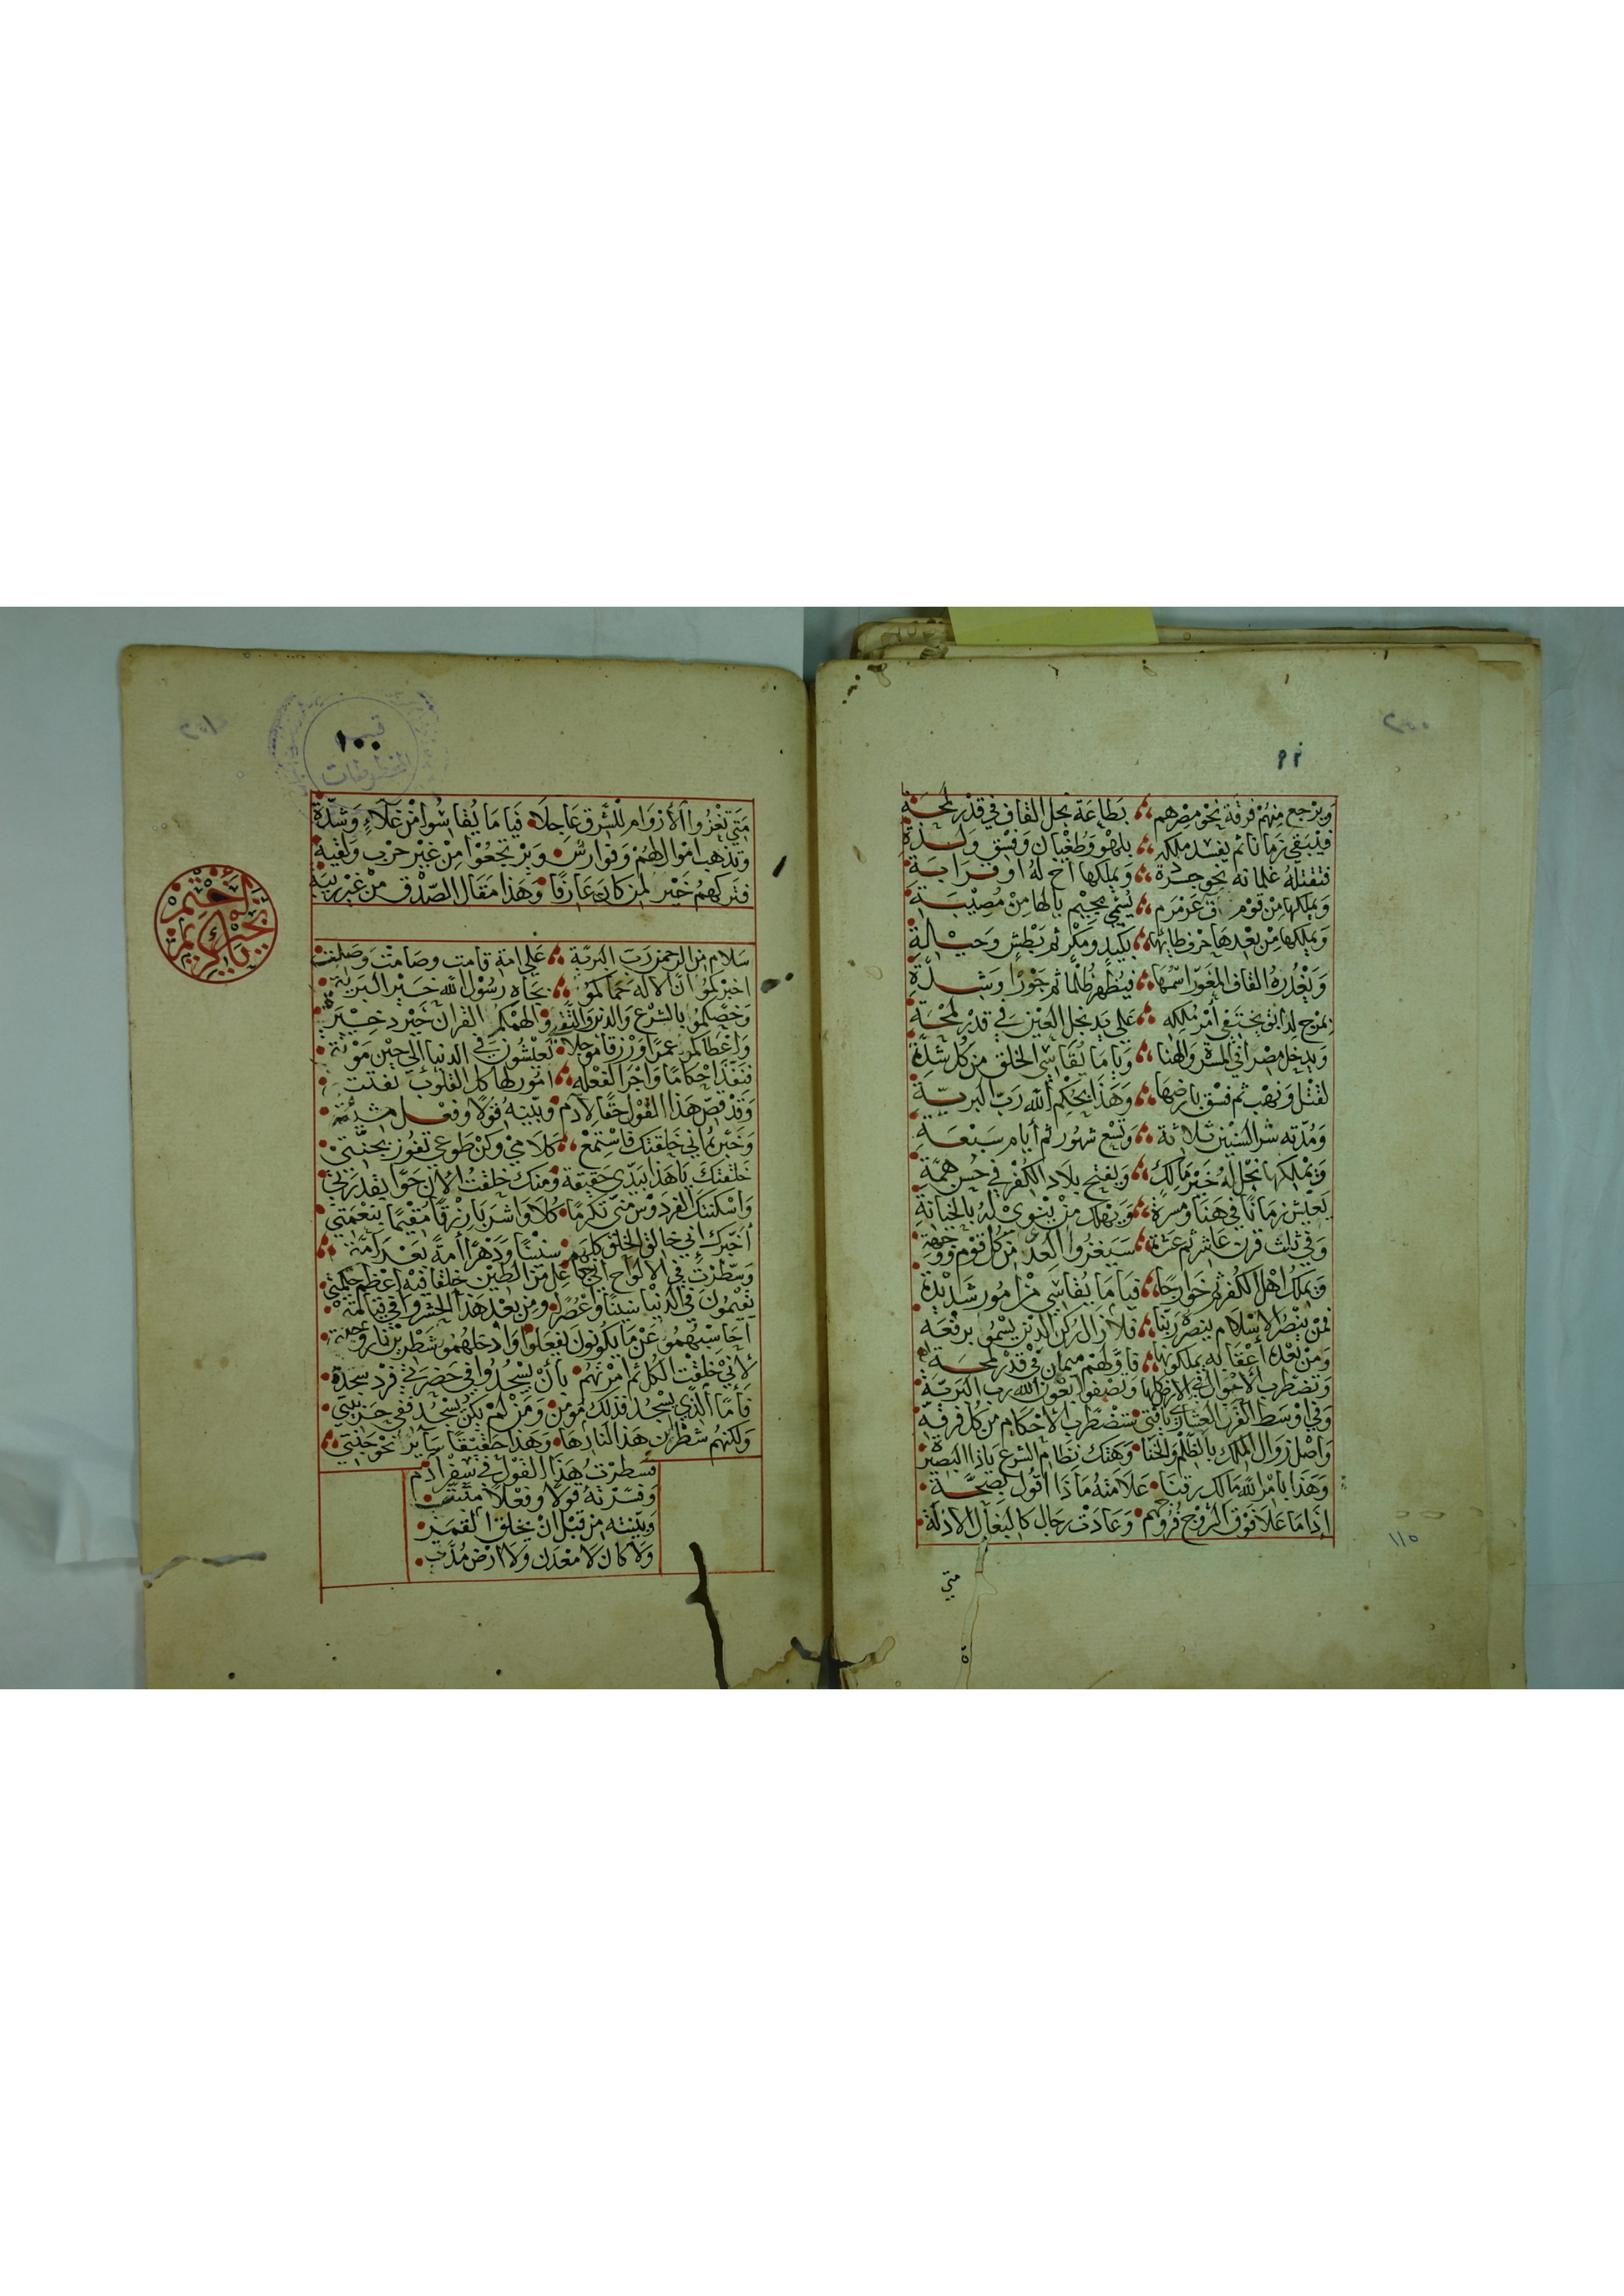 ويرجع منهم فرقة نحو مصرهم بطاعة نجل القاف في قدر لمحة
فيبقى زمانا ثم يفسد ملكه بلهو وطغيان وفسق ولذة
فتقتله غلمانه نحو جزة ويملكها اخ له او قرابة
ويملكها من قوم ق عرمرم يسمى بجيم يالها من مصيبة
ويملكها من بعدها حرف طايها بكيد ومكر ثم بطش وحيالة
ويغدره القاف المغور اسمها فيظهر ظلما ثم جورا وشدة
بمرج لدابق يختفى أمر ملكه على يد نجل العين في قدر لمحة
ويدخل مصرا في المسرة والهنا ويا ما يقاسي الخلق من كل شدة
لقتل ونهب ثم فسق بارضها وهذا بحكم الله رب البرية
ومدته شر السنين ثلاثة وتسع شهور ثم أيام سبعة
ويملكها نجل له خير مالك ويفتح بلاد الكفر في حسن همة
يعيش زمانا في هنا ومسرة ويهلك من ينوي له بالخيانة
وفي ثلث قرن عاشر ثم عثمة سيغزوا العدا من كل قوم ووجهة
ويملك اهل الكفر ثم خوارجا فيا ما يقاسي من امور شديدة
فمن ينصر الإسلام ينصره ربنا فلا زال ركن الدين يسموا برفعة
ومن بعده أعقابه يملكونها فاولهم ميمان في قدر لمحة
وتضطرب الاحوال في الارض كلها وتصفوا بعون الله رب البرية
وفي أوسط القرن العشاري يافتى ستضطرب الأحكام من كل فرقة
واصل زوال الملك بالظلم والخنا وهتك نظام الشرع ياذا البصيرة
وهذا بأمر الله مالك رقنا علامته ماذا اقول بصحة
إذا ما علا فوق المروج فروجهم وعادت رجال كالبغال الاذلة
متى
متى تغزوا الأزوام للشرق عاجلا فيا ما يقاسوا من غلاء وشدة
وتذهب اموال لهم وفوارس ويرتجعوا من غير حرب ولقية
فتركهم خير لمن كان عارفا وهذا مقال الصدق من غير ريبة
سلام من الرحمن رب البرية على امة قامت وصامت وصلت
اخبركموا ان الاله حماكموا بجاه رسول الله خير البرية
وخصكموا بالشرع والدين والتقى والهمكم القران خير دخيرة
واعطاكم عمرا ورزقا مؤجلا تعيشون في الدنيا إلى حين موتة
تنفذ احكاما واجرا لفعله امور لها كل القلوب تفتت
وقد قص هذا القول حقا لادم وبينه قولا وفعل مشيئة
وخبره اني خلقتك فاستمع كلامي وكن طوعي تفوز بجنتي
خلقتك ياهذا بيدي حقيقة ومنك خلقت الان حوا بقدرتي
واسكنتك الفردوس مني تكرما كلا واشربا رزقا مقيما بنعمتي
أخبرك إني خالق الخلق كلهم سنينا ودهرا أمة بعد امة
وسطرت في الالواح اني جاعل من الطين خلقا فيه اعظم حكمتي
يقيمون في الدنيا سنينا واعصرا ومن بعد هذا الحشر وافي قيامة
احاسبهمو عن ما يكونون يفعلوا وادخلهموا شطرين نار وجنة
لاني خلقت الكل ثم أمرتهم بأن يسجدوا في حضرتي فرد سجدة
فأما الذي يسجد فذلك مومن ومن لم يكن يسجد ففي حزنيتي
ولكنهم شطران هذا لنارها وهذا حقيقا ساير نحو جنتي
فسطرت هذا القول في سفر ادم
وفسرته قولا وفعلا مثبت
وبينته من قبل ان يخلق القمير
ولا كان لا معدن ولا ارض مدت